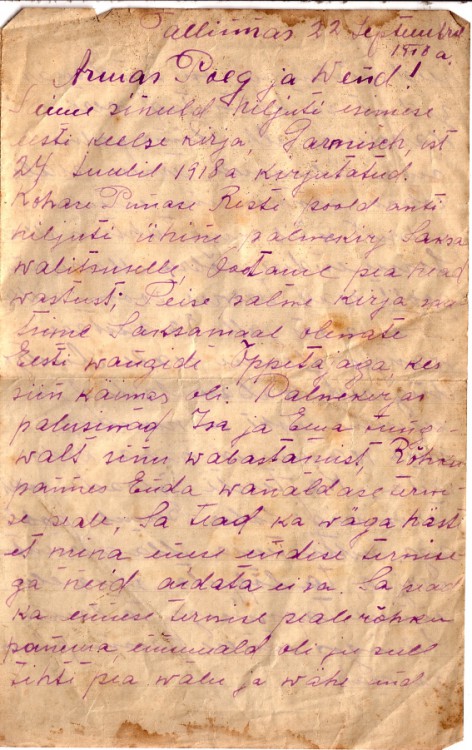 Tallinnas 22 Septembril
1918 a.
Armas Poeg ja Wend!
Saime sinult hiljuti esimese
eesti keelse kirja, Garmisch, ist
24 Juulil 1918 a kirjutatud.
Kohase Punase Risti poold anti
hiljuti ühine palwekiri Saksa
walitsusele. Ootame pea head
wastust; Teise palwe kirja
Saksamaal olewate
Eesti wangide Õppetajaga, kes
siin käimas oli. Palwekirjas
palusiwad Isa ja Ema
walt sinu wabastamist, Rõhku
pannes Enda wanaldase terwi-
se peale, Sa tead ka wäga häst
et mina enese endise terwise
ga neid aidata ei sa. Sa pead
ka ennese terwise peale rõhku
panema, ennemald oli ju sull
tihti pea walu ja wahe